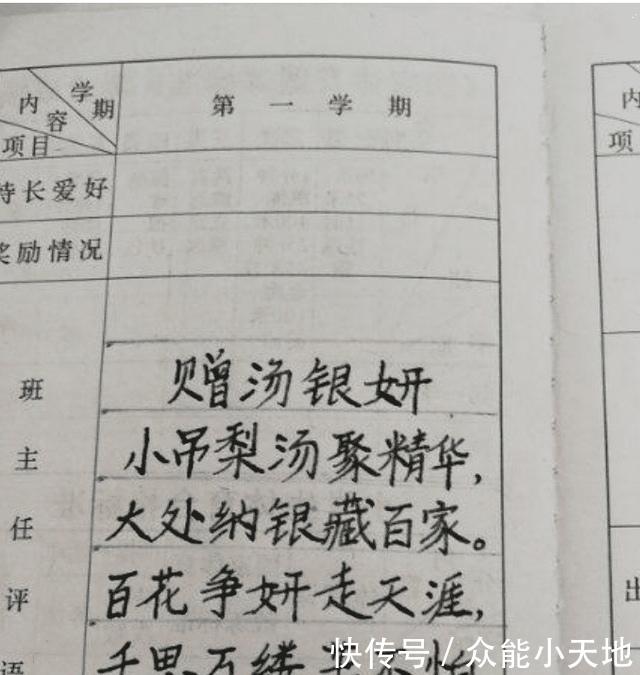 学期
内容
项目
第一学期
内
项
特长爱好
奖励情况
班主任评语
赠汤银妍
小吊梨汤聚精华,
大处纳银藏百家。
百花争妍走天涯,
千思万缕
出
快传号/众能小天地